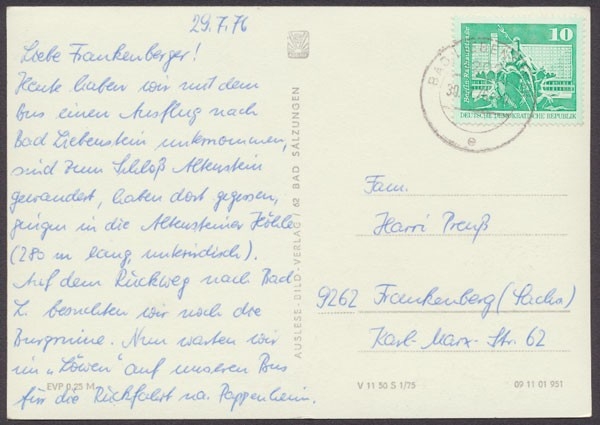 29.7.76
Liebe Frankenberger!
Heute haben wir mit dem
Bus einen Ausflug nach
Bad Liebenstein unternommen,
sind zum Schloß Altenstein
gewandert, haben dort gegessen,
gingen in die Altensteiner Höhle
(280 m lang unterirdisch).
Auf dem Rückweg nach Bad
L. besuchten wir noch die
Burgruine. Nun warten wir
im „Löwen" auf unseren Bus
für die Rückfahrt na. Pappenheim.
EVP 0,25 M
AUSLESE-BILD-VERLAG / 62 BAD SALZUNGEN
10
Berlin, Rathausstraße
DEUTSCHE DEMOKRATISCHE REPUBLIK
BAD
30.
e
Fam.
Harri Preuß
9262 Frankenberg (Sachs)
Karl-Marx-Str. 62
V 11 50 S 1/75
09 11 01 951